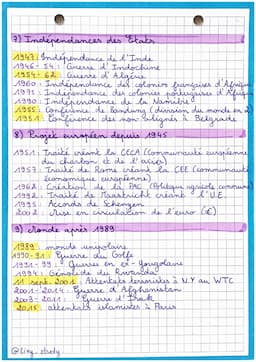 7) Indépendances des Etats
1947 : Indépendance de l'Inde
1946-54 : Guerre d'Indochine
1954-62 : Guerre d'Algérie
1960 : Indépendance des colonies françaises d'Afrique
1975 : Indépendance des colonies portugaises d'Afrique
1990 : Indépendance de la Namibie
1955 : Conférence de Bandung (division du monde en 2
1961 : Conférence des non-alignés à Belgrade
8) Projet européen depuis 1945
1951 : Traité créant la CECA (Communauté européenne
du charbon et de l'acier)
1957 : Traité de Rome créant la CEE (Communauté
économique européenne)
1962 : Création de la PAC (Politique agricole commune
1992 : Traité de Maastricht créant l'U.E.
1995 : Accords de Schengen
2002 : Mise en circulation de l'euro (€)
9) Monde après 1989
1989 : monde unipolaire
1990-91 : Guerre du Golfe
1991-99 : Guerres en ex-Yougoslavie
1994 : Génocide du Rwanda
11 sept. 2001 : Attentats terroristes à N.Y au WTC
2001-2014 : Guerre d'Afghanistan
2003-2011 : Guerre d'Irak
2015 : attentats islamistes à Paris
@lizy_study